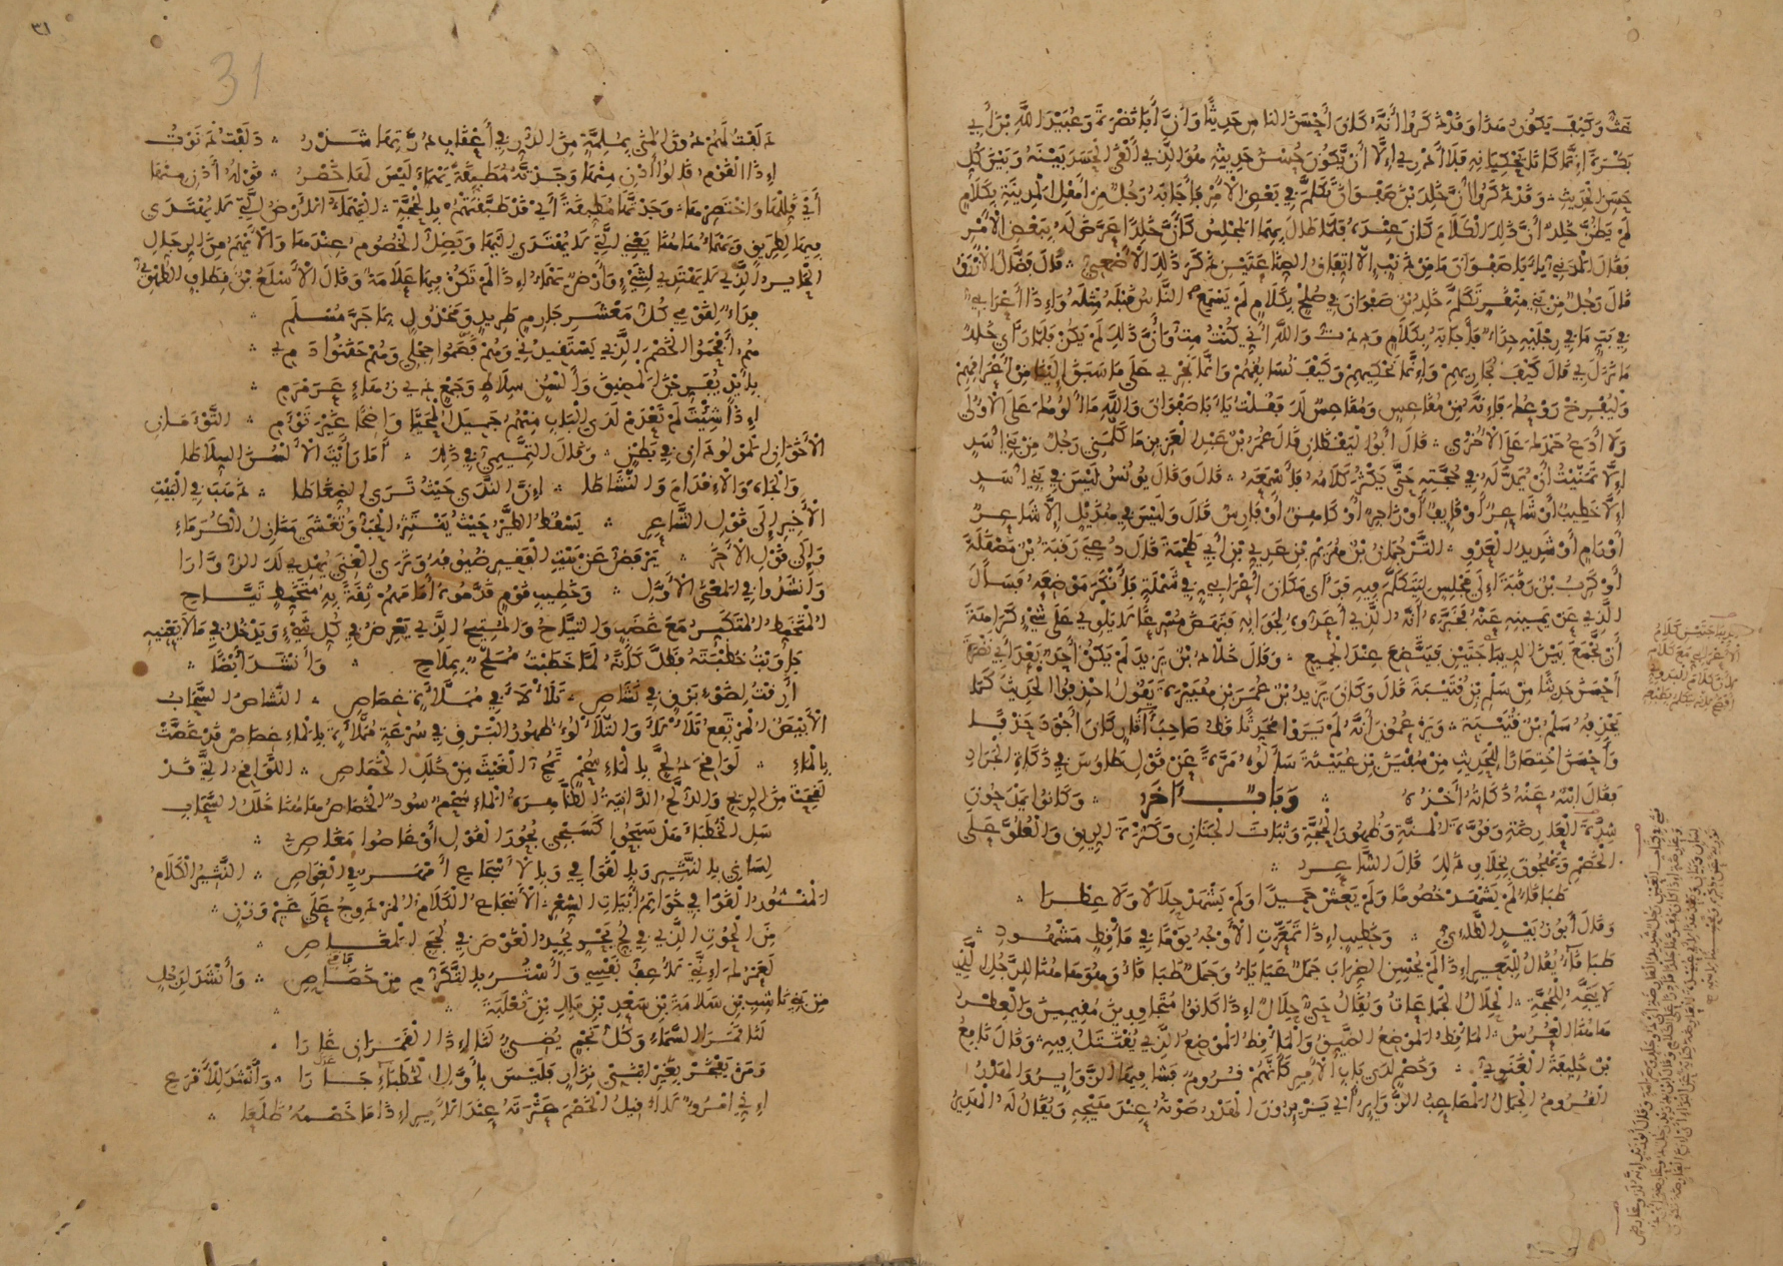 غث وكيف يكون هذا وقد ذكروا أنه كان أحسن الناس حديثا وأن أبا نضرة وعبيد الله بن أبي
بكرة إنما كانا يحكيانه فلا أدري إلا أن يكون حسن حديثه هو الذي ألقى الحسد بينه وبين كل
حسن الحديث وقد ذكروا أن خلد بن صفوان تكلم في بعض الأمر فأجابه رجل من أهل المدينة بكلام
لم يظن خلد أن ذلك الكلام كان عنده فلما طال بهما المجلس كأن خلدا عرض له ببعض الأمر
فقال المدني يا با صفوان ما من ذنب إلا اتفاق الصناعتين ذكر ذلك الأصمعي قال فضال الأزرق
قال رجل من بني منقر تكلم خلد بن صفوان في صلح بكلام لم يسمع الناس قبله مثله وإذا أعرابي
في بت ما في رجليه حذاء فأجابه بكلام وددت والله أني كنت مت وأن ذلك لم يكن فلما رأى خلد
ما نزل بي قال كيف نجاريهم وإنما نحكيهم وكيف نسابقهم وإنما نجري على ما سبق إلينا من أعراقهم
وليفرخ روعك فإنه من مقاعس ومقاعس لك فقلت يا با صفوان والله ما ألومك على الأولى
ولا أدع حمدك على الأخرى قال أبو اليقظان قال عمر بن عبد العزيز ما كلمني رجل من بني أسد
إلا تمنيت أن يمد له في حجته حتى يكثر كلامه فأسمعه قال وقال يونس ليس في بني أسد
إلا خطيب أو شاعر أو قايف أو زاجر أو كاهن أو فارس قال وليس في هذيل إلا شاعر
أو رام أو شديد العدو الترجمان بن هريم بن عدي بن أبي طحمة قال دعي رقبة بن مصقلة
أو كرب بن رقبة إلى مجلس ليتكلم فيه فرأى مكان أعرابي في شملة فأنكر موضعه فسأل
الذي عن يمينه عنه فخبره أنه الذي أعدوه لجوابه فنهض مسرعا لا يلوي على شيء كراهة
أن تجمع بين الديباجتين فيتضع عند الجميع وقال خلاد بن يزيد لم يكن أحد بعد أبي نضرة
أحسن حديثا من سلم بن قتيبة قال وكان يزيد بن عمر بن هبيرة يقول احذفوا الحديث كما
يحذفه سلم بن قتيبة ويزعمون أنه لم يروا محدثا قط صاحب آثار كان أجود حذفا
وأحسن اختصارا للحديث من سفين بن عيينة سألوه مرة عن قول طاوس في ذكاة الجراد
فقال ابنه عنه ذكاته أخذه وباب آخر وكانوا يمدحون
شدة العارضة وقوة المنة وظهور الحجة وثبات الجنان وكثرة الريق والعلو على
الخصم ويهجون بخلاف ذلك قال الشاعر
طباقا لم يشهد خصوما ولم يعش حميدا ولم يشهد حلالا ولا عطرا
وقال أبو زبيد الطاءي وخطيب إذا تمعرت الأوجه يوما في مأقط مشهود
طباقا يقال للبعير إذا لم يحسن الضراب جمل عياياء وجمل طباقا وهو هاهنا للرجل الذي
لا يتجه للحجة الحلال الجماعات ويقال حي حلال إذا كانوا متجاورين مقيمين والعطر
هاهنا العرس المأقط الموضع الضيق والمأقط الموضع الذي يقتتل فيه وقال نافع
بن خليفة الغنوي وخصم لدى باب الأمير كأنهم قروم فشا فيها الزواير والهدر
القروم الجمال المصاعب الزواير أي يزيرون الهدر صوته عند هيجه ويقال له الهدير
دلفت لهم دون المنى بملمة من الدر في أعقاب درتها شذر دلفت دنوت
إذا القوم قالوا أدن منها وجدتها مطبقة يهماء ليس لها خصر قوله أدن منها
أي قللها واختصرها وجدتها مطبقة أي قد طبقتهم بالحجة اليهماء الأرض التي لا يهتدى
فيها لطريق ويهماء هاهنا يعني التي لا يهتدى إليها ويضل الخصوم عندها والأيهم من الرجال
الحاير الذي لا يهتدي لشيء وأرض يهماء إذا لم تكن فيها علامة وقال الأسلع بن قطاف الطهوي
فداء لقومي كل معشر جارم طريد ومخذول بما جر مسلم
هم أفحموا الخصم الذي يستقيدني وهم فصموا حجلي وهم حقنوا دمي
بأيد يفرجن المضيق وألسن سلاط وجمع ذي زهاء عرمرم
إذا شئت لم تعدم لدى الباب منهم جميل المحيا واضحا غير توأم التوءمان
الأخوان المولودان في بطن وقال التميمي في ذلك أما رأيت الألسن السلاطا
والجاه والإقدام والنشاطا إن الندى حيث ترى الضغاطا ذهب في البيت
الأخير إلى قول الشاعر يسقط الطير حيث ينتثر الحب وتغشى منازل الكرماء
وإلى قول الآخر يرفض عن بيت الفقير ضيوفه وترى الغني يهدي لك الزوارا
وأنشدوا في المعنى الأول وخطيب قوم قدموه أمامهم ثقة به متخمط تياح
المتخمط المتكبر مع غضب والتياح والمتيح الذي يعرض في كل شيء ويدخل في ما لا يعنيه
جاوبت خطبته فظل كأنه لما خطبت مملح بملاح وأنشد أيضا
أرقت لضوء برق في نشاص تلألأ في مملأة غصاص النشاص السحاب
الأبيض المرتفع تلألأ والتلألؤ ظهور البرق في سرعة مملأة بالماء غصاص قد غصت
بالماء لواقح دلح بالماء سحم تمج الغيث من خلل الخصاص اللواقح التي قد
لقحت من الريح والدالح الدانية الظاهرة الماء سحم سود الخصاص هاهنا خلل السحاب
سل الخطباء هل سبحوا كسبحي بحور القول أو غاصوا مغاصي
لساني بالنثير وبالقوافي وبالأسجاع أمهر في الغواص النثير الكلام
المنثور القوافي خواتم أبيات الشعر الأسجاع الكلام المزدوج على غير وزن
من الحوت الذي في لج بحر يجيد الغوص في لجج المغاص
لعمرك إنني لأعف نفسي وأستر بالتكرم من خصاص وأنشد لرجل
من بني ناشب بن سلامة بن سعد بن مالك بن ثعلبة
لنا قمر السماء وكل نجم يضيء لنا إذا القمران غارا
ومن يفخر بغير ابني نزار فليس بأول الخطباء جارا وأنشد للأقرع
إني امرؤ لا أقيل الخصم عثرته عند الأمير إذا ما خصمه ظلعا
٣١
31